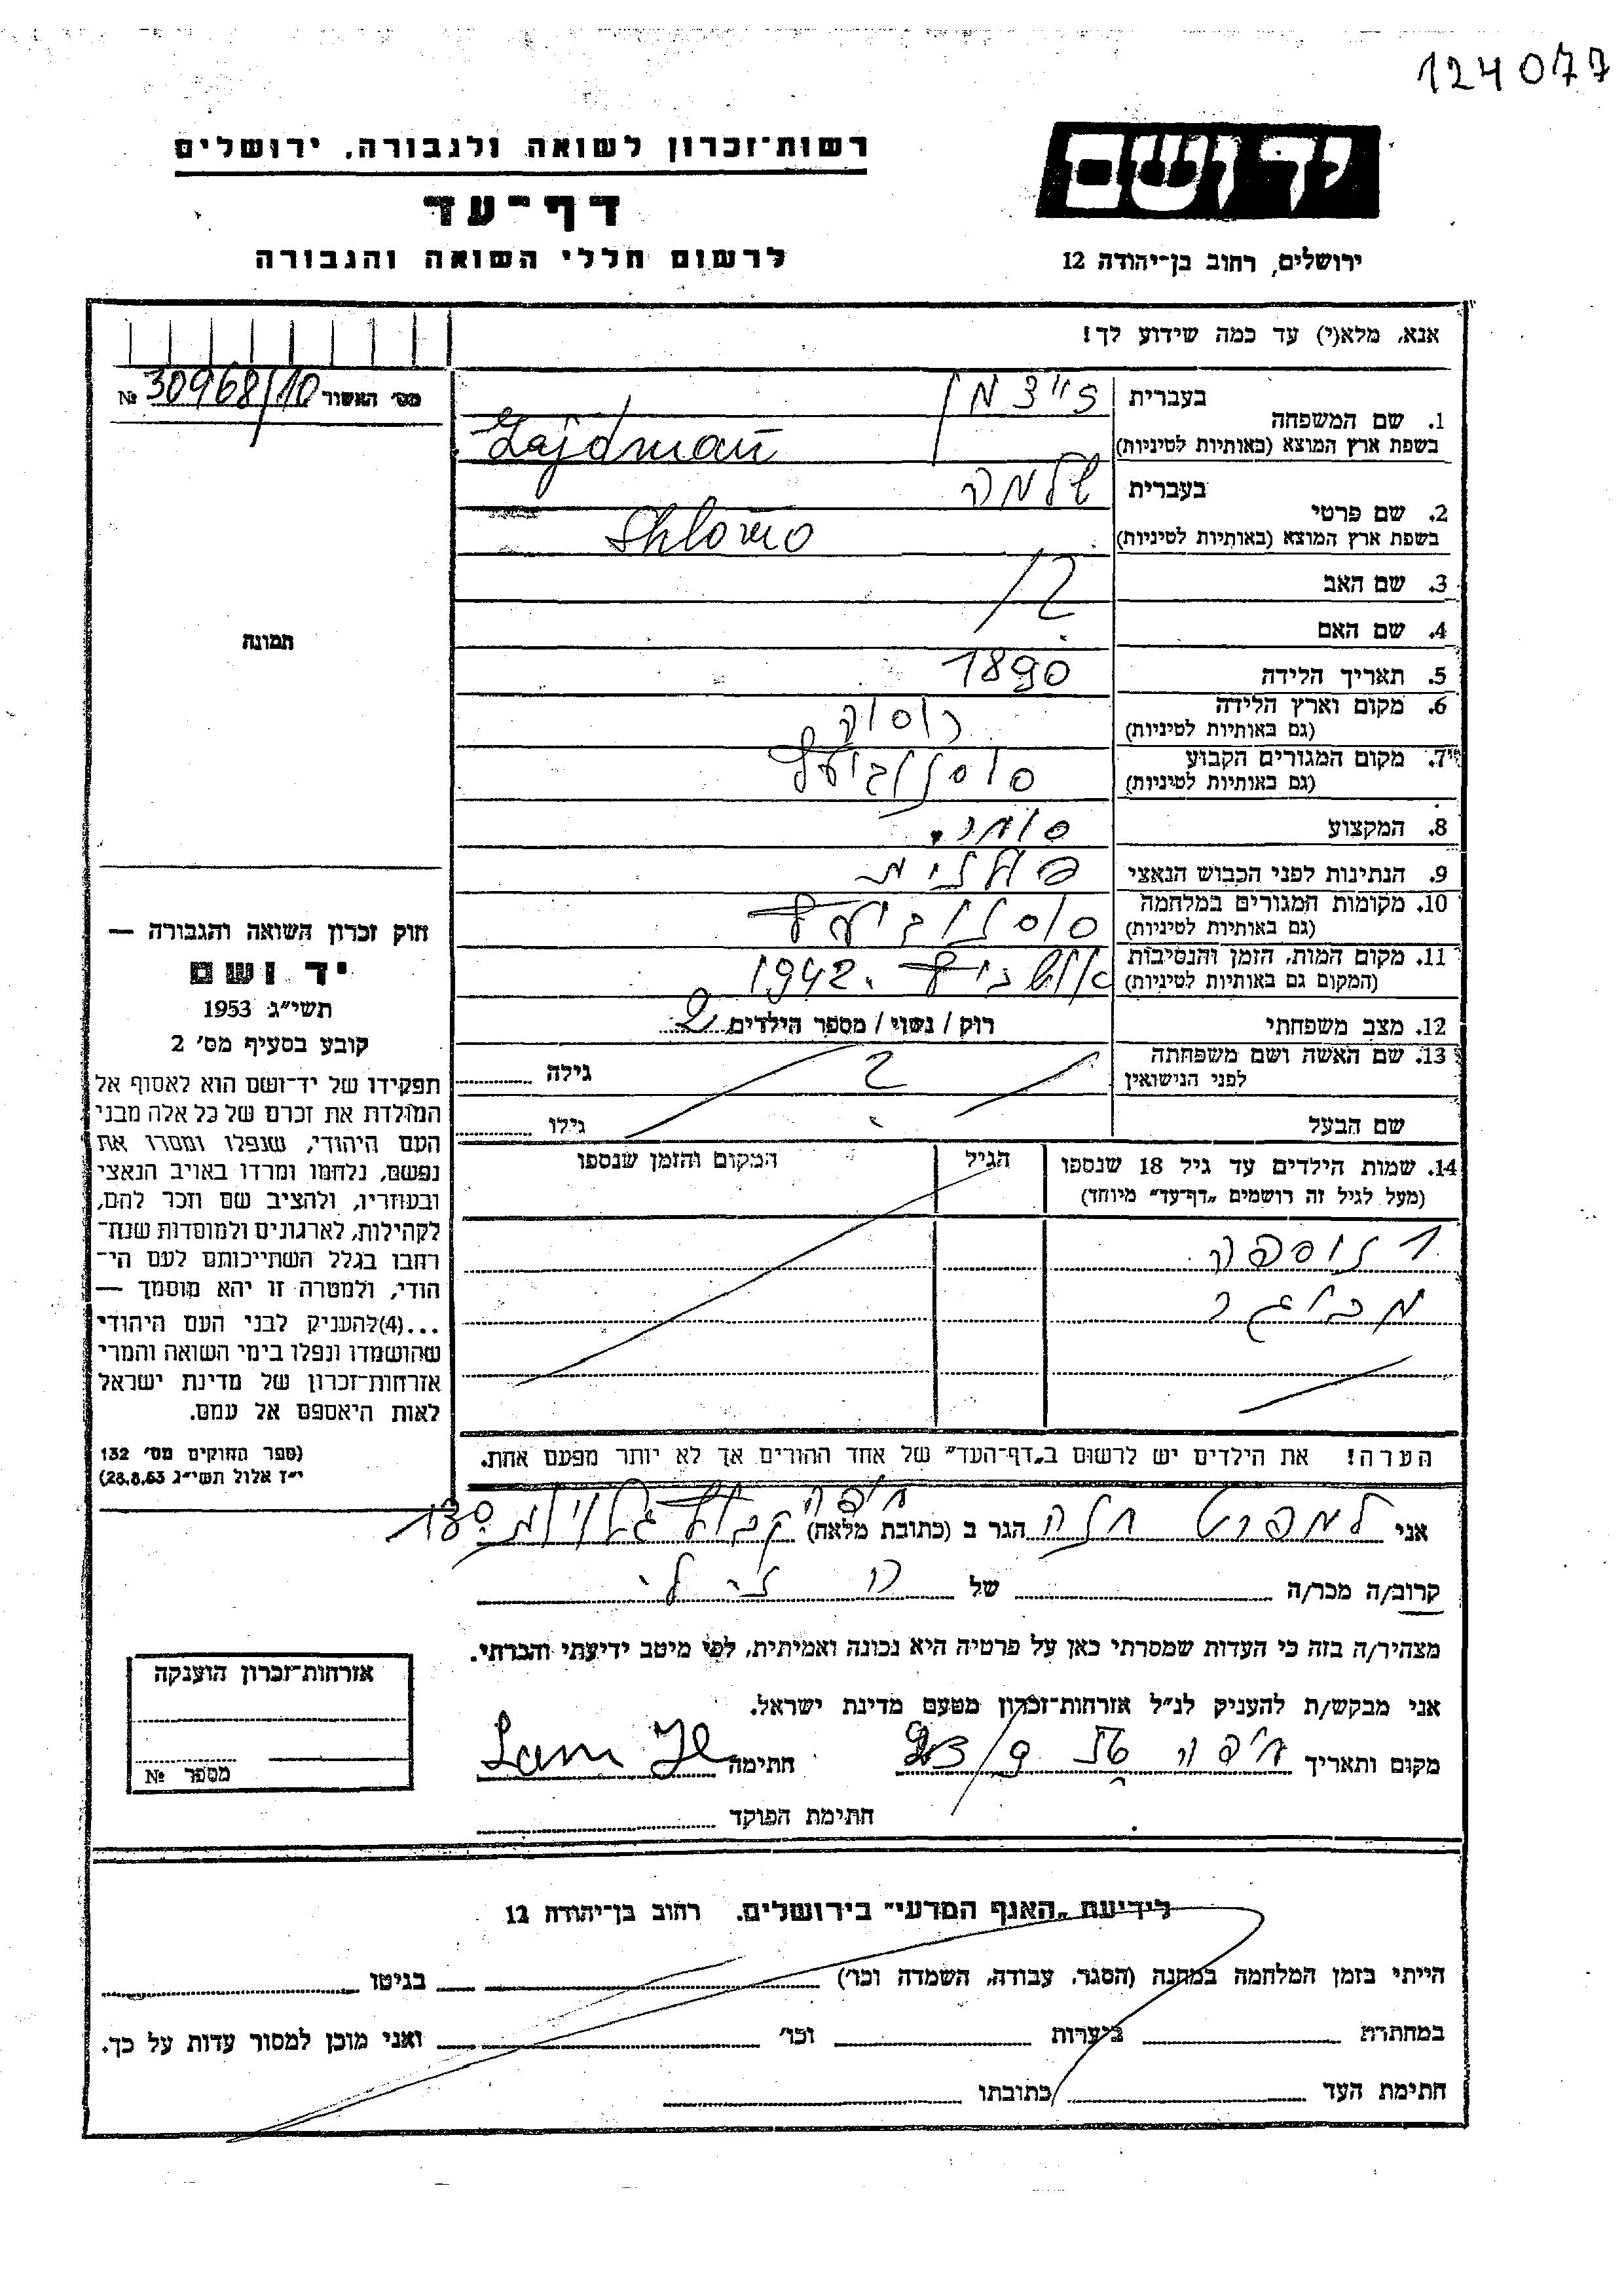 124077
רשות־זכרון לשואה ולגבורה, ירושלים
יד ושם
דף־עד
לרשום חללי השואה והגבורה
ירושלים, רחוב בן־יהודה 12
אנא, מלא(י) עד כמה שידוע לך!
מס׳ האשור 30968/10 №
1. שם המשפחה
בעברית
בשפת ארץ המוצא (באותיות לטיניות) Zajdman
2. שם פרטי
בעברית שלמה
בשפת ארץ המוצא (באותיות לטיניות) Shlomo
3. שם האב
4. שם האם
תמונה
5. תאריך הלידה 1890
6. מקום וארץ הלידה
(גם באותיות לטיניות)
7. מקום המגורים הקבוע סוסנוביץ
(גם באותיות לטיניות)
8. המקצוע סוחר.
9. הנתינות לפני הכבוש הנאצי פולנית
10. מקומות המגורים במלחמה סוסנוביץ
(גם באותיות לטיניות)
11. מקום המות, הזמן והנסיבות אושביץ 1942.
(המקום גם באותיות לטיניות)
12. מצב משפחתי רוק / נשוי / מספר הילדים 2
13. שם האשה ושם משפחתה
לפני הנישואין
? גילה
שם הבעל גילו
14. שמות הילדים עד גיל 18 שנספו
(מעל לגיל זה רושמים „דף־עד״ מיוחד)
הגיל
המקום והזמן שנספו
הערה! את הילדים יש לרשום ב„דף־העד״ של אחד ההורים אך לא יותר מפעם אחת.
חוק זכרון השואה והגבורה —
יד ושם
תשי״ג 1953
קובע בסעיף מס׳ 2
תפקידו של יד־ושם הוא לאסוף אל
המולדת את זכרם של כל אלה מבני
העם היהודי, שנפלו ומסרו את
נפשם, נלחמו ומרדו באויב הנאצי
ובעוזריו, ולהציב שם וזכר להם,
לקהילות, לארגונים ולמוסדות שנח־
רבו בגלל השתייכותם לעם הי־
הודי, ולמטרה זו יהא מוסמך —
...(4)להעניק לבני העם היהודי
שהושמדו ונפלו בימי השואה והמרי
אזרחות־זכרון של מדינת ישראל
לאות היאספם אל עמם.
(ספר החוקים מס׳ 132
י״ז אלול תשי״ג 28.8.53)
חיפה
אני למפרט חנה הגר ב (כתובת מלאה) קבוץ גלויות 130
קרוב/ה מכר/ה של
מצהיר/ה בזה כי העדות שמסרתי כאן על פרטיה היא נכונה ואמיתית, לפי מיטב ידיעתי והכרתי.
אני מבקש/ת להעניק לנ״ל אזרחות־זכרון מטעם מדינת ישראל.
מקום ותאריך חיפה חתימה
חתימת הפוקד
אזרחות־זכרון הוענקה
מספר №
לידיעת „האגף המדעי״ בירושלים, רחוב בן־יהודה 12
הייתי בזמן המלחמה במחנה (הסגר, עבודה, השמדה וכו׳) בגיטו
במחתרת ביערות וכו׳ ואני מוכן למסור עדות על כך.
חתימת העד כתובתו